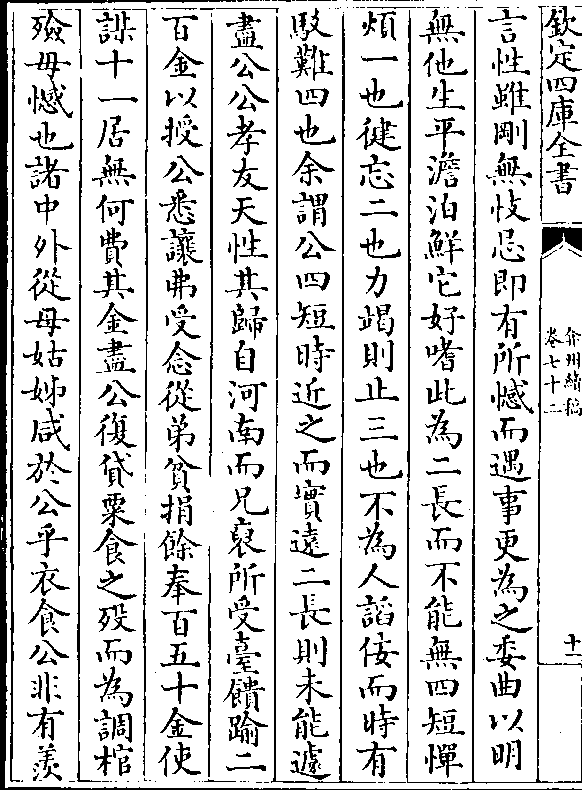 欽定四庫全書
弇州續稿
卷七十二
十一
言性雖剛無忮忌即有所憾而遇事更為之委曲以明
無他生平澹泊鮮它好嗜此為二長而不能無四短憚
煩一也健忘二也力竭則止三也不為人謟佞而時有
駁難四也余謂公四短時近之而實遠二長則未能遽
盡公公孝友天性其歸自河南而兄裒所受臺饋踰二
百金以授公悉讓弗受念從弟貧捐餘奉百五十金使
謀十一居無何費其金盡公復貸粟食之歿而為調棺
殮毋憾也諸中外從母姑姊咸於公乎衣食公非有羡